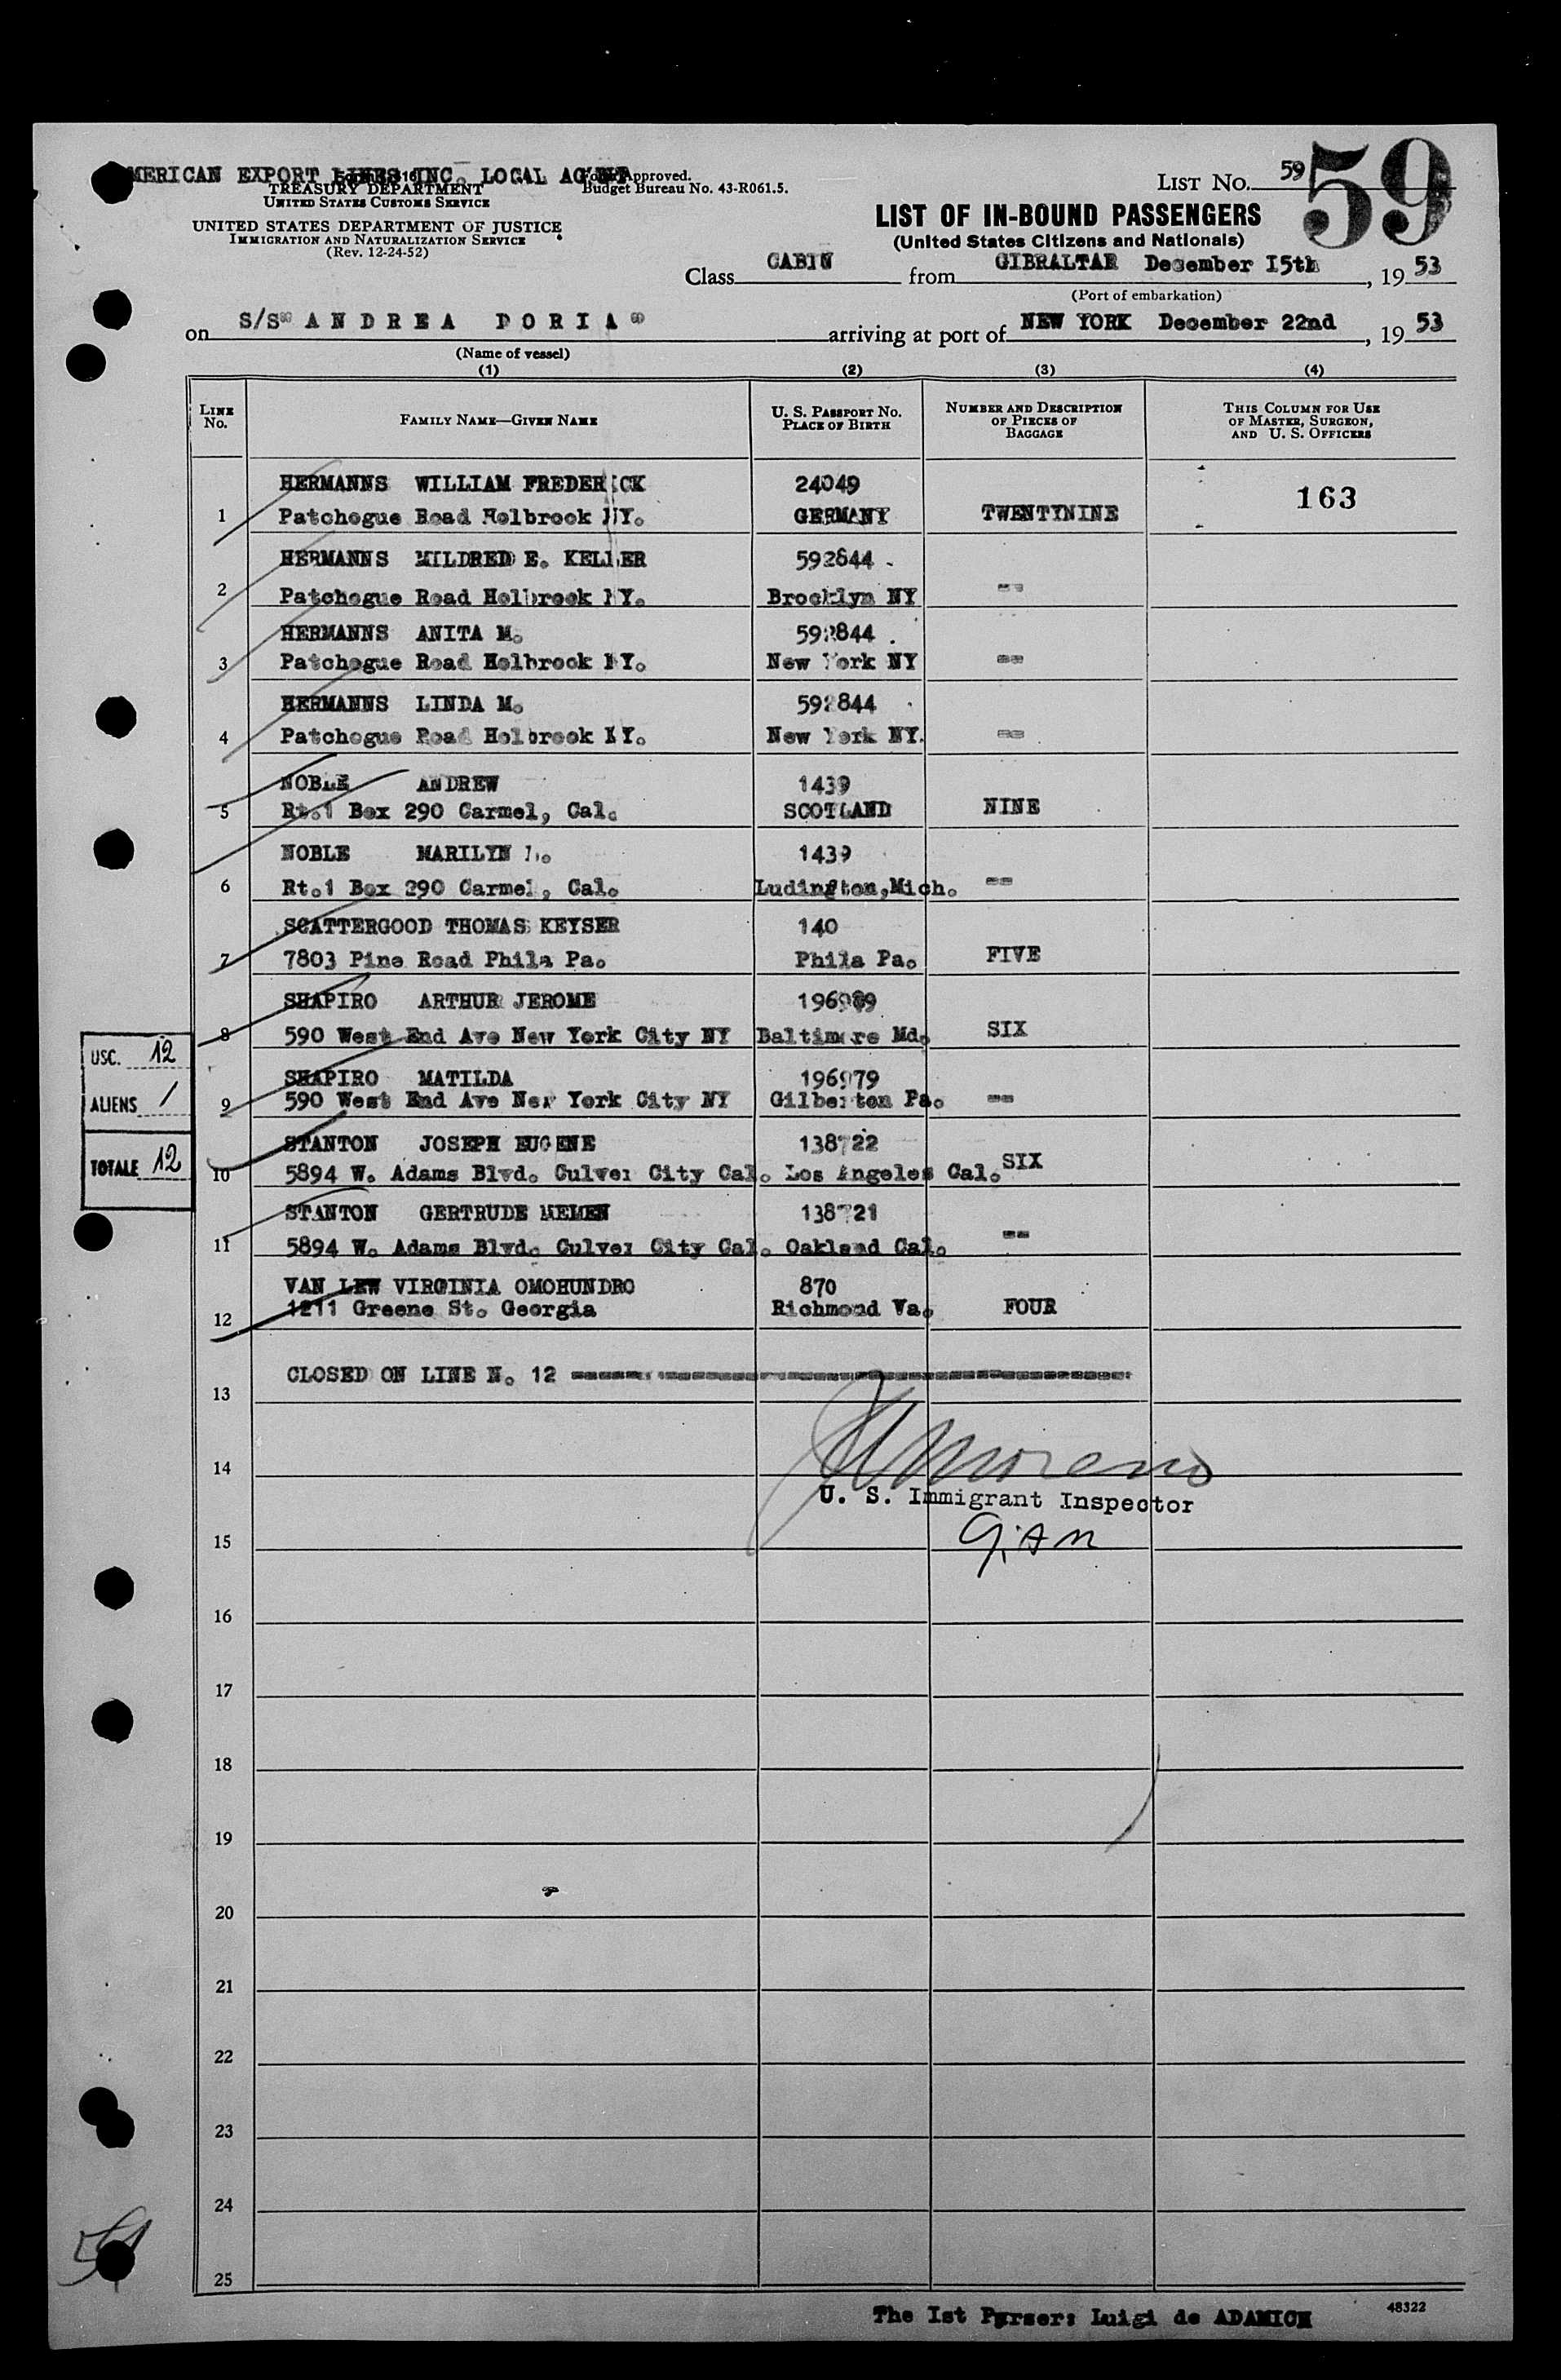 MERICAN EXPORT LINES INC. LOCAL AGENT
Form Approved.
Budget Bureau No. 43-R061.5.
TREASURY DEPARTMENT
UNITED STATES CUSTOMS SERVICE
UNITED STATES DEPARTMENT OF JUSTICE
IMMIGRATION AND NATURALIZATION SERVICE
(Rev. 12-24-52)
LIST No. 59
59
LIST OF IN-BOUND PASSENGERS
(United States Citizens and Nationals)
Class CABIN from GIBRALTAR December I5th, 19 53
(Port of embarkation)
on S/S" ANDREA DORIA" arriving at port of NEW YORK December 22nd, 19 53
(Name of vessel)
(1) (2) (3) (4)
LINE No. FAMILY NAME—GIVEN NAME U. S. PASSPORT NO. PLACE OF BIRTH NUMBER AND DESCRIPTION OF PIECES OF BAGGAGE THIS COLUMN FOR USE OF MASTER, SURGEON, AND U. S. OFFICERS
HERMANNS WILLIAM FREDERICK 24049 163
1 Patchogue Road Holbrook NY. GERMANY TWENTYNINE
HERMANNS MILDRED E. KELLER 592844
2 Patchogue Road Holbrook NY. Brooklyn NY --
HERMANNS ANITA M. 592844
3 Patchogue Road Holbrook NY. New York NY --
HERMANNS LINDA M. 592844
4 Patchogue Road Holbrook NY. New York NY. --
NOBLE ANDREW 1439
5 Rt.1 Box 290 Carmel, Cal. SCOTLAND NINE
NOBLE MARILYN L. 1439
6 Rt.1 Box 290 Carmel, Cal. Ludington,Mich. --
SCATTERGOOD THOMAS KEYSER 140
7 7803 Pine Road Phila Pa. Phila Pa. FIVE
SHAPIRO ARTHUR JEROME
8 590 West End Ave New York City NY Baltimore Md. SIX
SHAPIRO MATILDA 196979
9 590 West End Ave New York City NY Gilberton Pa. --
STANTON JOSEPH EUGENE 138722
10 5894 W. Adams Blvd. Culver City Cal. Los Angeles Cal. SIX
STANTON GERTRUDE 138721
11 5894 W. Adams Blvd. Culver City Cal. Oakland Cal. --
VAN LEW VIRGINIA OMOHUNDRO 870
12 1211 Greene St. Georgia Richmond Va. FOUR
USC. 12
ALIENS /
TOTALE 12
13 CLOSED ON LINE N. 12 --------
14 Moreno
U. S. Immigrant Inspector
15
16
17
18
19
20
21
22
23
24
59
25
The Ist Purser: Luigi de ADAMICH
48322